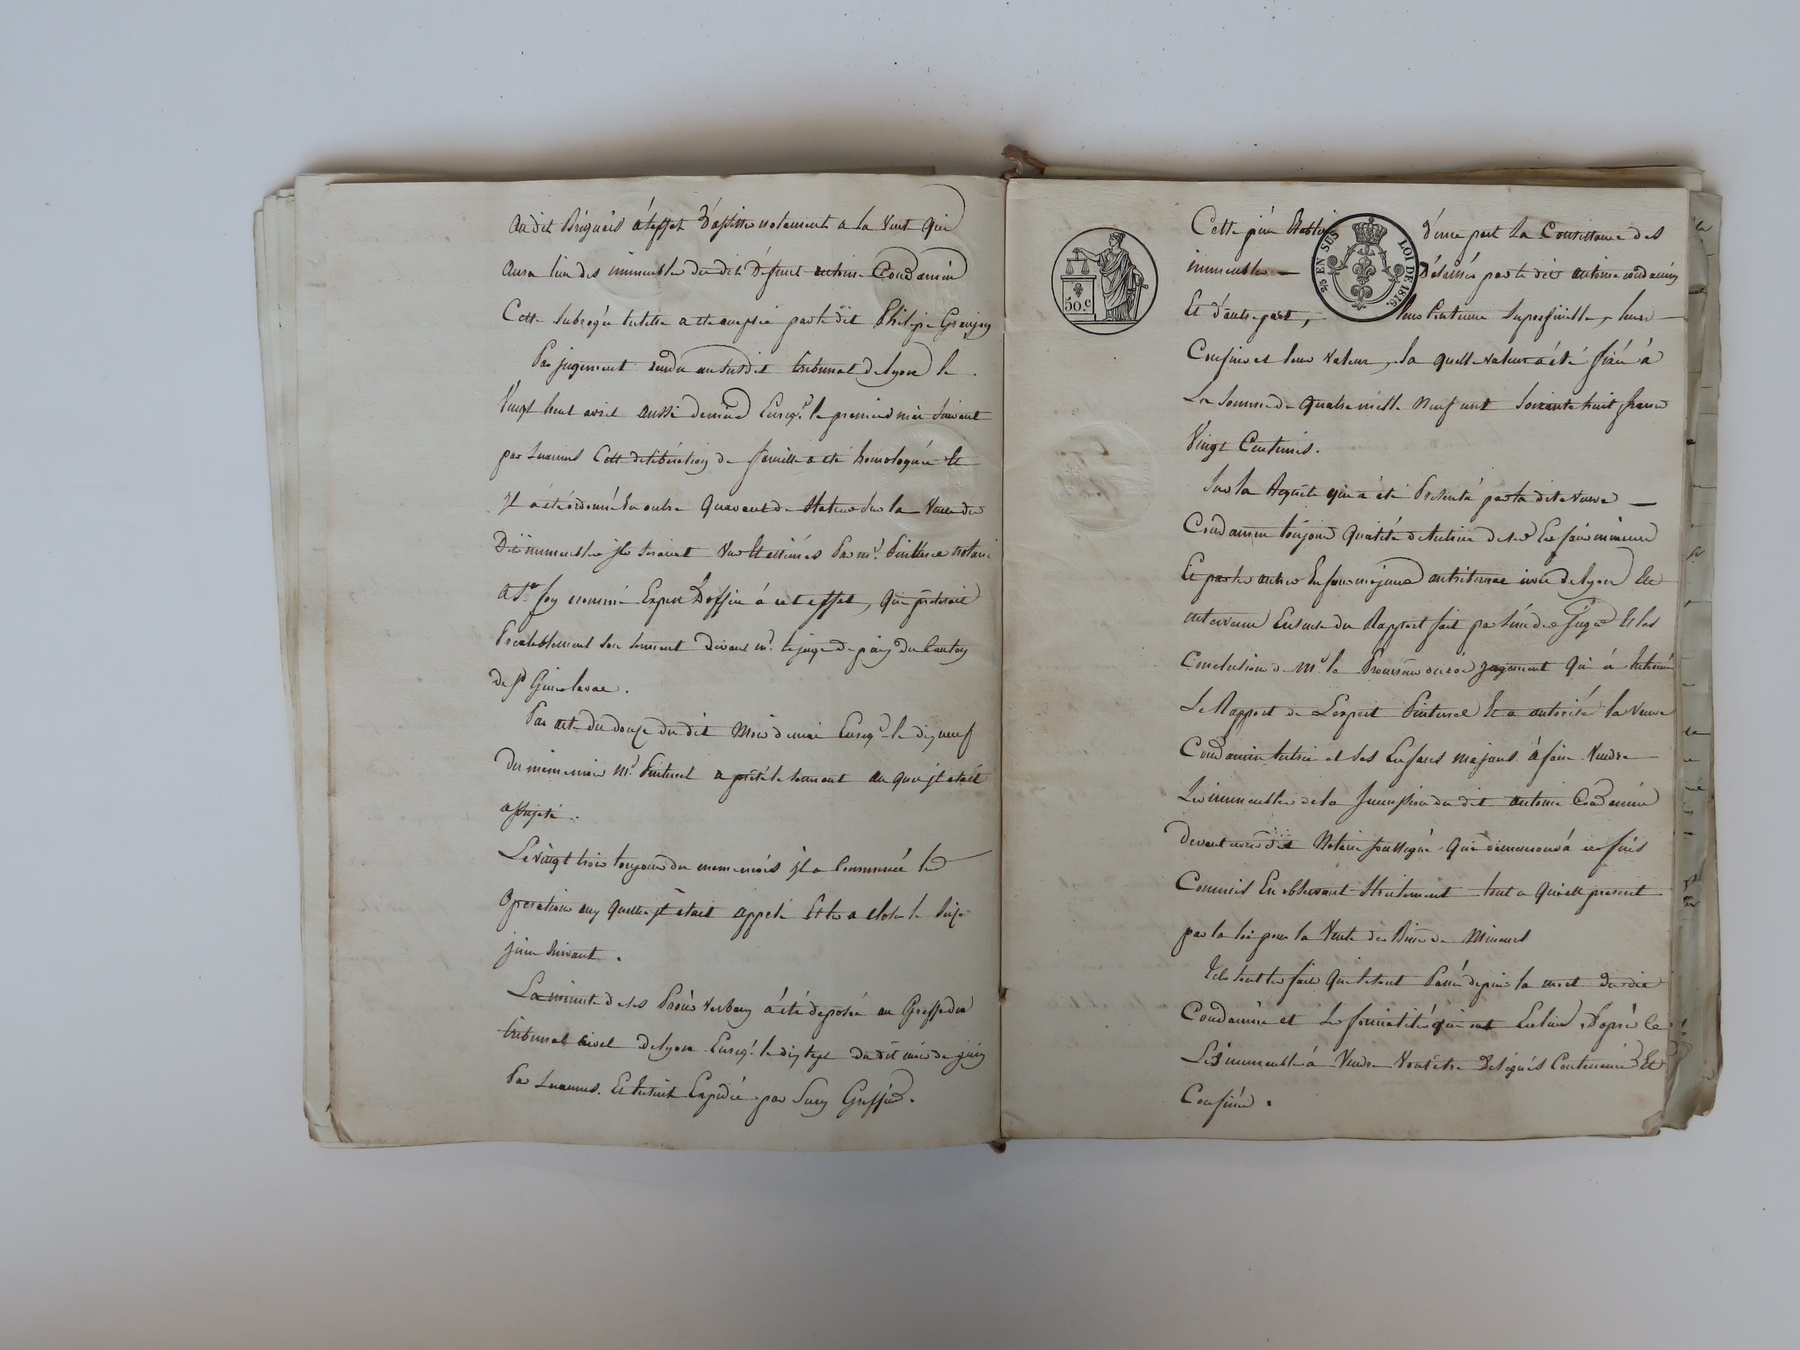 au dit Brignais à l'effet d'assister notament a la Vente qui
aura lieu des immeubles du dit Défunt antoine Condamin
Cette Subrogée tutelle a été acceptée par le dit Philipe Granjon
Par jugement rendu au susdit tribunal de Lyon le
Vingt huit avril aussi dernier Enreg.é le premier mai Suivant
par Cette délibération de famille a été homologuée Et
il a été ordonné En outre Quavant de Statuer Sur la Vente des
Dits immeubles ils Seraient Vus Et estimés Par m.r notaire
a S.te foy nommé Expert D'office à cet effet, Qui préterait
Préalablement Son Serment Devant m.r le juge De paix Du Canton
de S.t Genis laval.
Par acte du douze du dit Mois de mai Enreg.é le dix neuf
du même mois M.r a prêté le serment au quel il etait
assujeti.
Le vingt trois toujours du meme mois il a Commencé les
Operations aux Quelles il était appelé Et les a closes le Seize
juin Suivant.
La minute de ses Procès Verbaux a été déposée au Greffe du
tribunal Civil de Lyon Enreg.é le dix sept du dit mois de juin
Par Et Ensuite Expédiée par Greffier.
50 c
25 EN SUS
LOI DE 1816.
Cette pièce Etablit d'une part La Consistance des
immeubles Délaissés par le dit antoine condamin
Et d'autre part, leur Contenue Superficielle, leurs
Confins et leur Valeur, la quelle valeur a été fixée à
La Somme de Quatre mille Neuf cent Soixante huit francs
Vingt Centimes.
Sur la Requête qui a été Présenté par la dite veuve
Condamin toujours Qualité de tutrice de ses Enfans mineurs
Et par les autres Enfans majeurs au tribunal civil de Lyon Est
intervenu Ensuite du Rapport fait par l'un des Juges Et les
Conclusions de M.r le Procureur du roi jugement Qui a Enteriné
Le Rapport de L'expert Et a autorisé la Veuve
Condamin tutrice et Ses Enfans majeurs à faire Vendre
Les immeubles de la Succession du dit antoine Condamin
Devant nous dit Notaire soussigné Qui demeurons à ces fins
Commis En observant Strictement tout ce Qui est prescrit
par la loi pour la Vente des Biens de Mineurs
Tels sont les faits Qui Se Sont Passés depuis la mort Du dit
Condamin et Les formalités qui ont Eu lieu D'après les
Les immeubles à Vendre Vont être Désignés Contenués Et
Confinés.